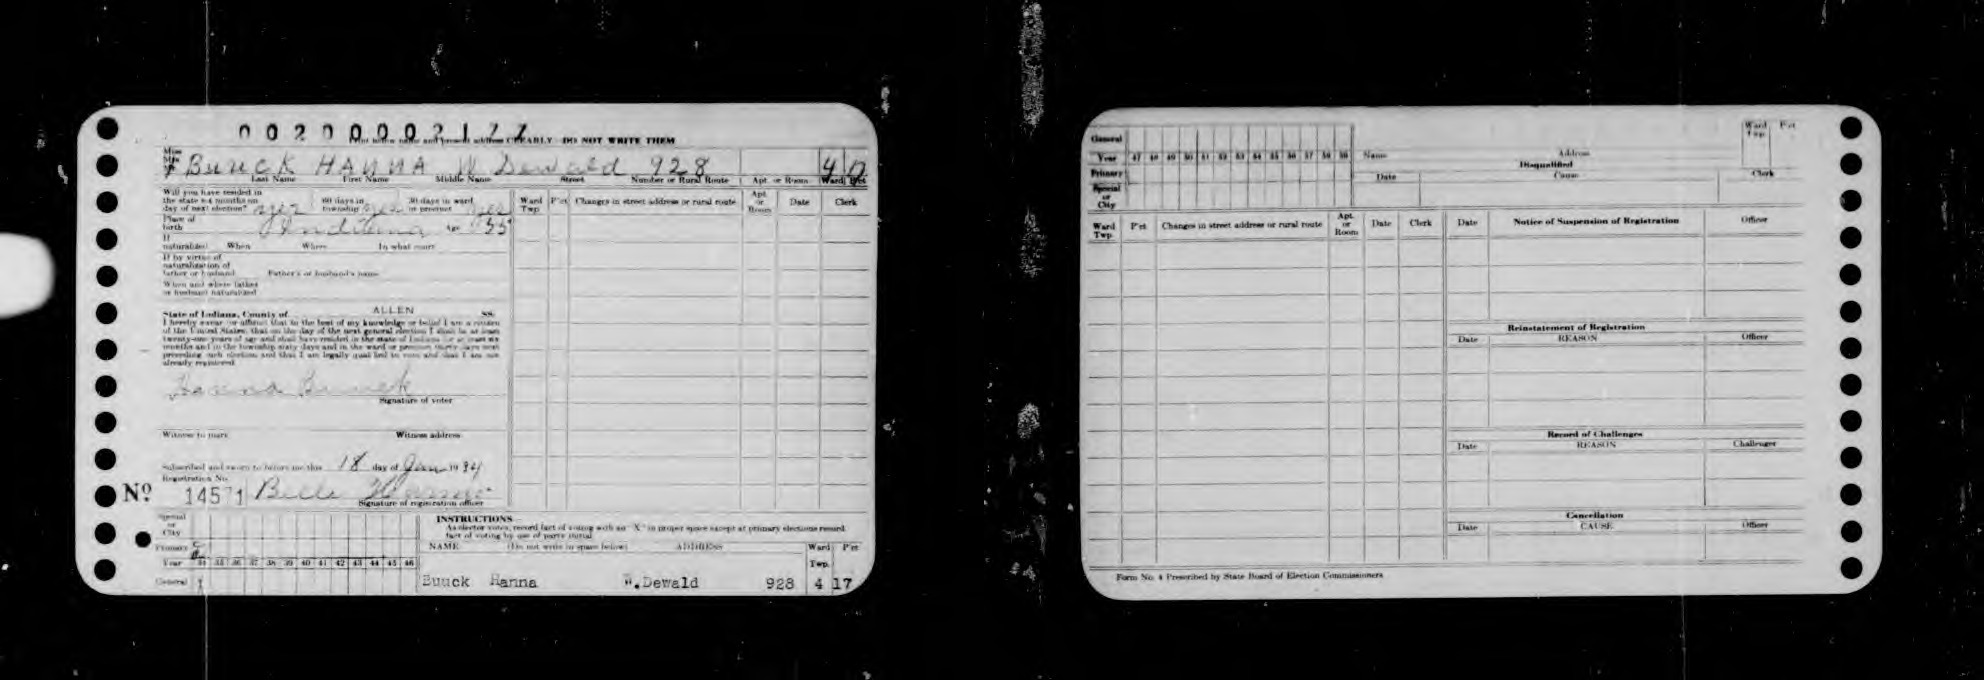 00200002177
Print below name and present address CLEARLY - DO NOT WRITE THEM
Miss
Mrs
Mr
BUUCK HANNA W Dewald 928 4 17
Last Name First Name Middle Name Street Number or Rural Route Apt. or Room Ward Pct
Will you have resided in
the state 6-4 months on
day of next election? yes
60 days in
township yes
30 days in ward
or precinct yes
Place of
birth Indiana Age 55
If
naturalized When Where In what court
If by virtue of
naturalization of
father or husband Father's or husband's name
When and where father
or husband naturalized
State of Indiana, County of ALLEN ss.
I hereby swear (or affirm) that to the best of my knowledge or belief I am a citizen
of the United States; that on the day of the next general election I shall be at least
twenty-one years of age and shall have resided in the state of Indiana for at least six
months and in the township sixty days and in the ward or precinct thirty days next
preceding such election and that I am legally qualified to vote and that I am not
already registered.
Hanna Buuck
Signature of voter
Witness to mark Witness address
Subscribed and sworn to before me this 18 day of Jan 19 34
Registration No.
No 14571 Belle
Signature of registration officer
Ward
Twp.
P'ct
Changes in street address or rural route
Apt.
or
Room
Date
Clerk
Special
or
City
Primary
Year 34 35 36 37 38 39 40 41 42 43 44 45 46
General
INSTRUCTIONS
As elector votes, record fact of voting with an "X" in proper space except at primary elections record
fact of voting by use of party initial
NAME (Do not write in space below) ADDRESS Ward Twp. P'ct
Buuck Hanna W.Dewald 928 4 17
General
Year 47 48 49 50 51 52 53 54 55 56 57 58 59
Primary
Special
or
City
Name Address
Ward
Twp.
P'ct
Disqualified
Date Cause Clerk
Ward
Twp.
P'ct
Changes in street address or rural route
Apt.
or
Room
Date
Clerk
Date Notice of Suspension of Registration Officer
Reinstatement of Registration
Date REASON Officer
Record of Challenges
Date REASON Challenger
Cancellation
Date CAUSE Officer
Form No. 4 Prescribed by State Board of Election Commissioners